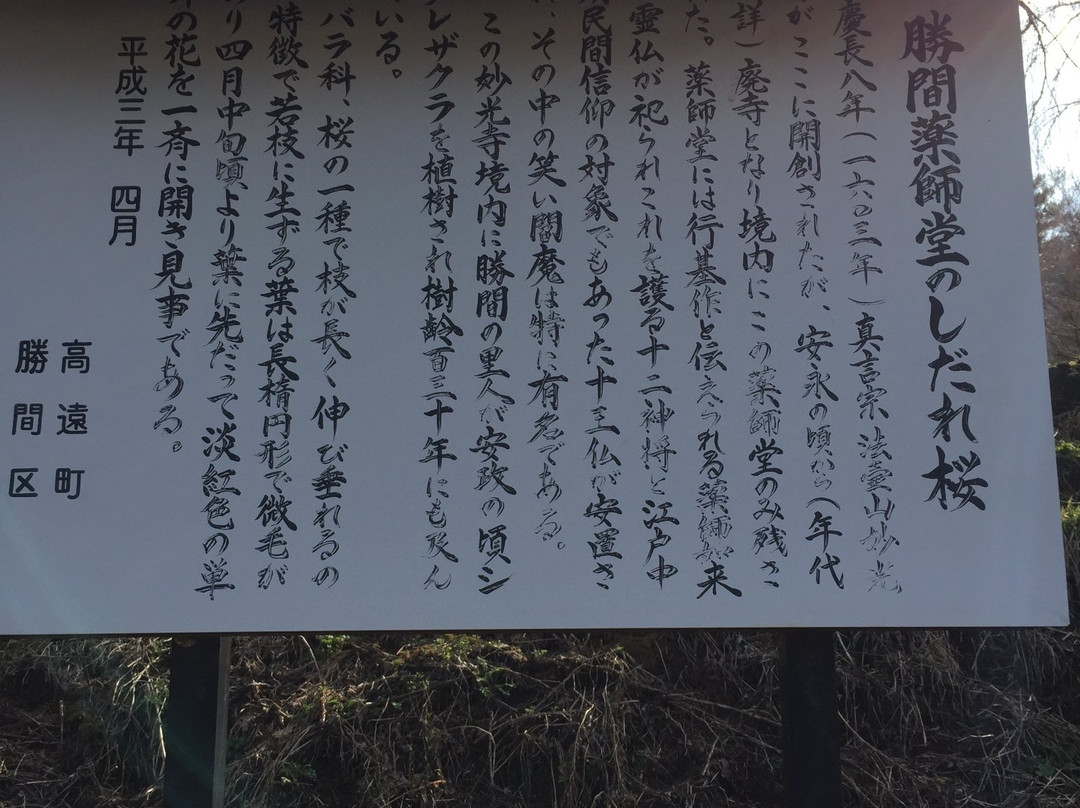 勝間薬師堂のしだれ桜
慶長八年(一六〇三年)真言宗法壷山妙光
がここに開創されたが、安永の頃から(年代
詳)廃寺となり境内にこの薬師堂のみ残さ
た。薬師堂には行基作と伝えられる薬師如来
霊仏が祀られこれを護る十二神将と江戸中
民間信仰の対象でもあった十三仏が安置さ
、その中の笑い閻魔は特に有名である。
この妙光寺境内に勝間の里人が安政の頃シ
レザクラを植樹され樹齢百三十年にも及ん
いる。
バラ科、桜の一種で枝が長く伸び垂れるの
特徴で若枝に生ずる葉は長楕円形で微毛が
り四月中旬頃より葉に先だって淡紅色の単
の花を一斉に開き見事である。
平成三年 四月
高遠町
勝間区